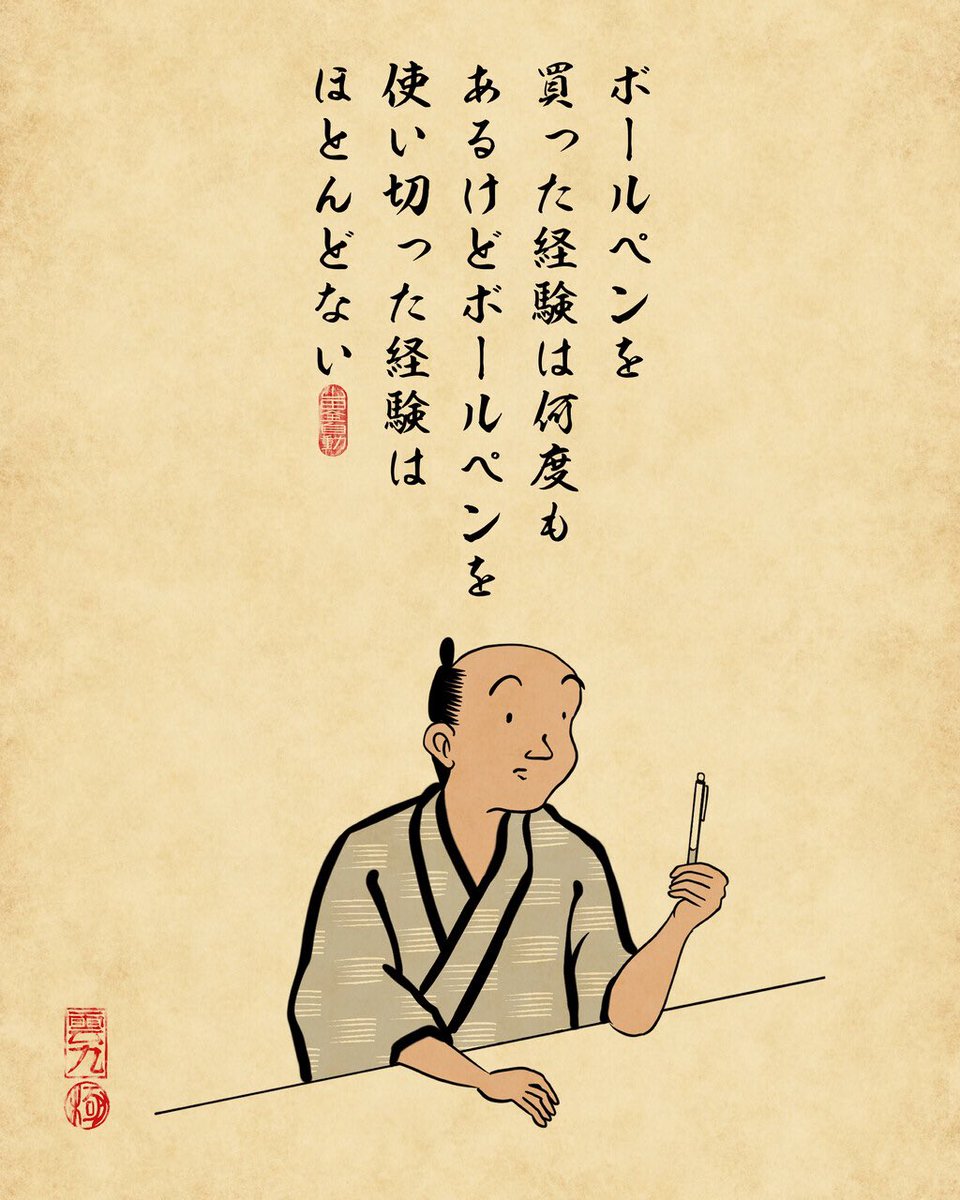 ボールペンを
買った経験は何度も
あるけどボールペンを
使い切った経験は
ほとんどない